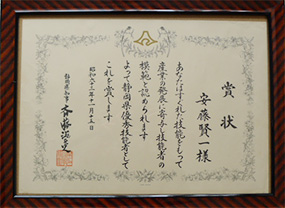 賞状
安藤賢一様
あなたはすぐれた技能をもって
産業の発展に寄与し技能者の
模範と認められます
よって静岡県優秀技能者として
これを賞します
昭和六十三年十一月十五日
静岡県知事
斉藤滋与史